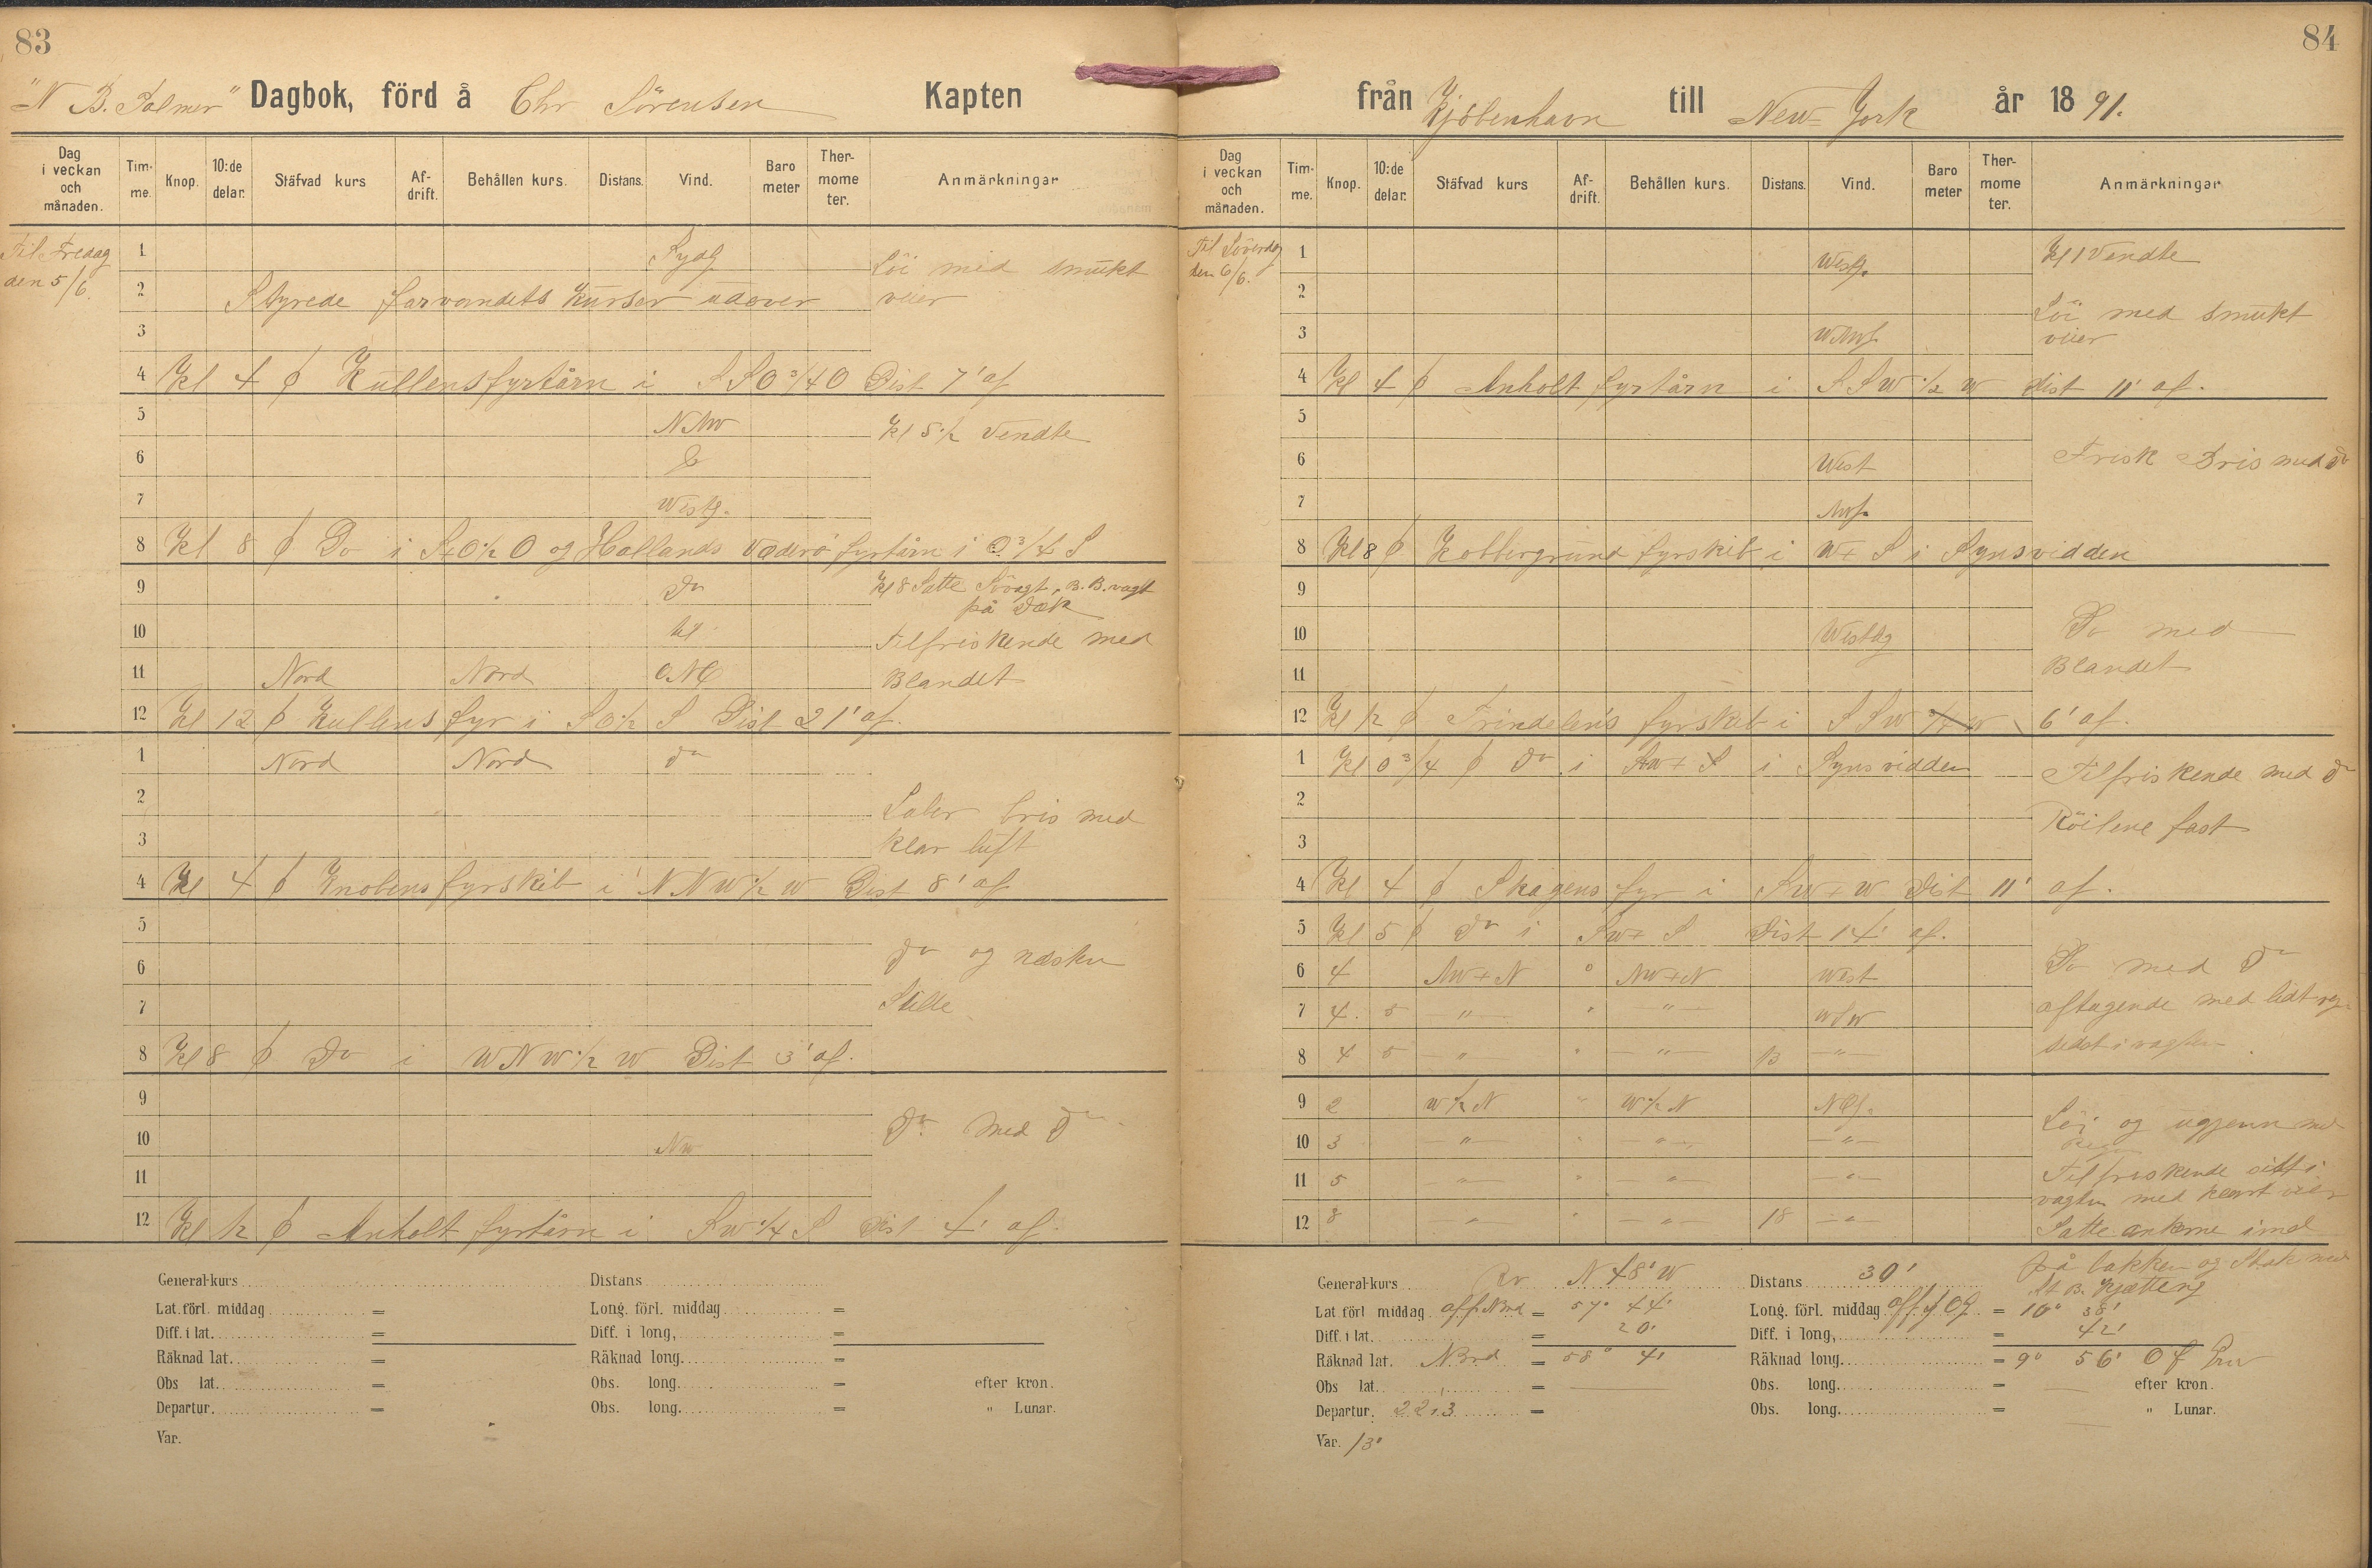 83
"N. B. Palmer" Dagbok, förd å Chr Sörensen Kapten
Dag i veckan och månaden. Tim-me. Knop. 10:de delar. Stäfvad kurs Af-drift. Behållen kurs. Distans. Vind. Baro meter Ther-mome ter. Anmärkningar
Til Fredag den 5/6.
1 Sydlg Löi med smukt
2 Styrede farvandets kurser udover veier
3
4 Kl 4 Kullens fyrtårn i SSO 3/4 O Dist 7' af
5 NNW Kl 5 1/2 Vendte
6
7 Westlg.
8 Kl 8 Do i StO 1/2 O og Hallands Vaderö fyrtårn i O 3/4 S
9 Do Kl 8 Satte Sövagt, B. B. vagt
på Dæk
10 til Tilfriskende med
11 Nord Nord Blandet
12 Kl 12 Kullens fyr i SO 1/2 S Dist 21' af.
1 Nord Nord Do
2 Laber bris med
3 klar luft
4 Kl 4 Knobens fyrskib i NNW 1/2 W Dist 8' af
5
6 Do og næsten
7 Stille
8 Kl 8 Do i WNW 1/2 W Dist 3' af.
9
10 NW Do med Do
11
12 Kl 12 Anholt fyrtårn i SW 1/4 S Dist 4' af.
General-kurs Distans
Lat. förl. middag = Long. förl. middag =
Diff. i lat. = Diff. i long, =
Räknad lat. = Räknad long. =
Obs lat. = Obs. long. = efter kron.
Departur. = Obs. long. = " Lunar.
Var.
84
från Kjöbenhavn till New-York år 1891.
Dag i veckan och månaden. Tim-me. Knop. 10:de delar. Stäfvad kurs Af-drift. Behållen kurs. Distans. Vind. Baro meter Ther-mome ter. Anmärkningar
Til Löverdg den 6/6.
1 Westlg. Kl 1 Vendte
2 Löi med smukt
3 veier
4 Kl 4 Anholt fyrtårn i SSW 1/2 W dist 11' af.
5
6 West Frisk Bris med Do
7
8 Kl 8 Kobbergrund fyrskib i W t S i Synsvidden
9
10 Westlg Do med
11 Blandet
12 Kl 12 Trindelens fyrskib i SSW 6' af.
1 Kl 0 3/4 Do i SW t S i Synsvidden Tilfriskende med Do
2
3 Röilene fast
4 Kl 4 Skagens fyr i SW t W Dist 11' af.
5 Kl 5 Do i SW t S Dist 14' af.
6 4 NW t N 0 NW t N West Do med Do
7 4 5 " " " WSW aftagende med lidt
8 4 5 " " " 13 " sidst i vagten
9 2 W 1/2 N " W 1/2 N Löi og ugjenn
10 3 " " " "
11 5 " " " " Tilfriskende sidst i
vagten med klart veir
12 8 " " " 18 " Satte ankrne ind
på bakken og Stak
St. B. Kjætting
General-kurs Rv N 48° W Distans 30'
Lat. förl middag = 57° 44' Long. förl. middag = 10° 38'
Diff. i lat. = 20' Diff. i long, = 42'
Räknad lat. Nord = 58° 4' Räknad long. = 9° 56' O f Grw
Obs lat. = Obs. long. = efter kron.
Departur. 22.3 = Obs. long. = " Lunar.
Var. 13°